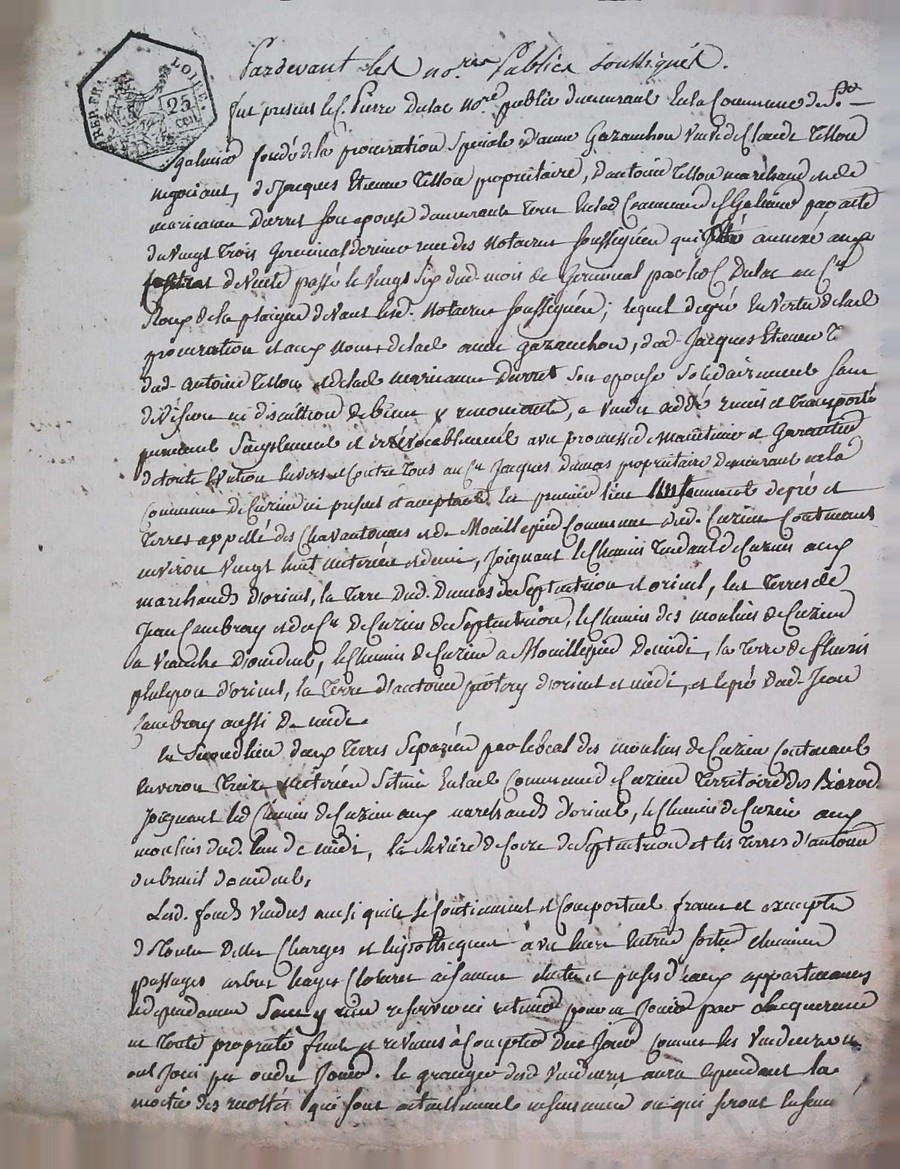 REP. FRA. LOIRE. 25 cen
Pardevant les no.res Publics soussignés.
fut present le C. Pierre Dulac no.re public demeurant en la Commune de S.t
galmier fondé de la procuration speciale d'anne Gazanchon veuve de Claude Tillon
negociant, de Jacques Etienne Tillon propriétaire, d'antoine Tillon marchand et de
marieanne Durret son epouse demeurants tous en lad. Commune de S.t Galmier par acte
du vingt trois Germinal dernier reçu des notaires soussignés qui annexé aux
de vente passé le vingt six dud. mois de Germinal par led. C. Dulac au C.en
de la plaigne devant lesd. notaires soussignés; lequel de gré en vertu de lad.
procuration et aux noms de lad. anne gazanchon, dud. Jacques Etienne T.
dud. antoine Tillon et de lad. marieanne Durret son epouse solidairement sans
division ni discution de biens y renonçant, a vendu cédé remis et transporté
purement simplement et irrévocablement avec promesse de maintenir et garantir
de toute eviction envers et contre tous au C.en Jacques dumas propriétaire demeurant en la
Commune de Cuzieu ici présent et acceptant En premier lieu de pré et
terres appellé des Chavantonnes et de Mouillepied Commune dud. Cuzieu Contenant
environ vingt huit meterées et demi, joignant le Chemin tendant de Cuzieu aux
marchands d'orient, la terre dud. Dumas de Septentrion et orient, les terres de
Jean Cambray et du C.en de Cuzieu de Septentrion, le Chemin des moulins de Cuzieu
a Veauche d'occident, le Chemin de Cuzieu a Mouillepied de midi, la terre de fleuris
philipon d'orient, la terre d'antoine d'orient et midi, et le pré dud. Jean
Cambray aussi de midi.
En Second lieu deux terres separées par le béal des moulins de Cuzieu Contenant
environ treize meterées situées en lad. Commune de Cuzieu territoire des
joignant led. Chemin de Cuzieu aux marchands d'orient, le Chemin de Cuzieu aux
moulins dud. lieu de midi, la Rivière de Coize de Septentrion et les terres d'antoine
dubreuil d'occident,
Lesd. fonds vendus ainsi qu'ils se Contiennent et Comportent francs et exempts
de toutes Charges et hipotheques avec leurs entrées sorties chemins
passages arbres hayes Clotures aisances chutes et prises d'eaux appartenances
et dependances sans y rien reserver ni retenir pour en jouir par l'acquereur
en toute propriété fruits et revenus à Compter de ce jour comme les vendeurs en
ont joui pu ou du jouir. le granger desd. vendeurs aura cependant la
moitié des recoltes qui sont actuellement ensemencé ou qui seront